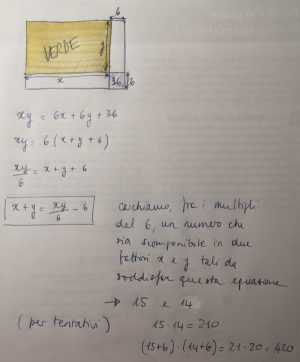 6
VERDE
y
x
36
6
xy = 6x + 6y + 36
xy = 6 (x + y + 6)
xy/6 = x + y + 6
x + y = xy/6 - 6
cerchiamo, fra i multipli
del 6, un numero che
sia scomponibile in due
fattori x e y tali da
soddisfare questa equazione
→ 15 e 14
(per tentativi) 15 · 14 = 210
(15+6) · (14+6) = 21 · 20 = 420